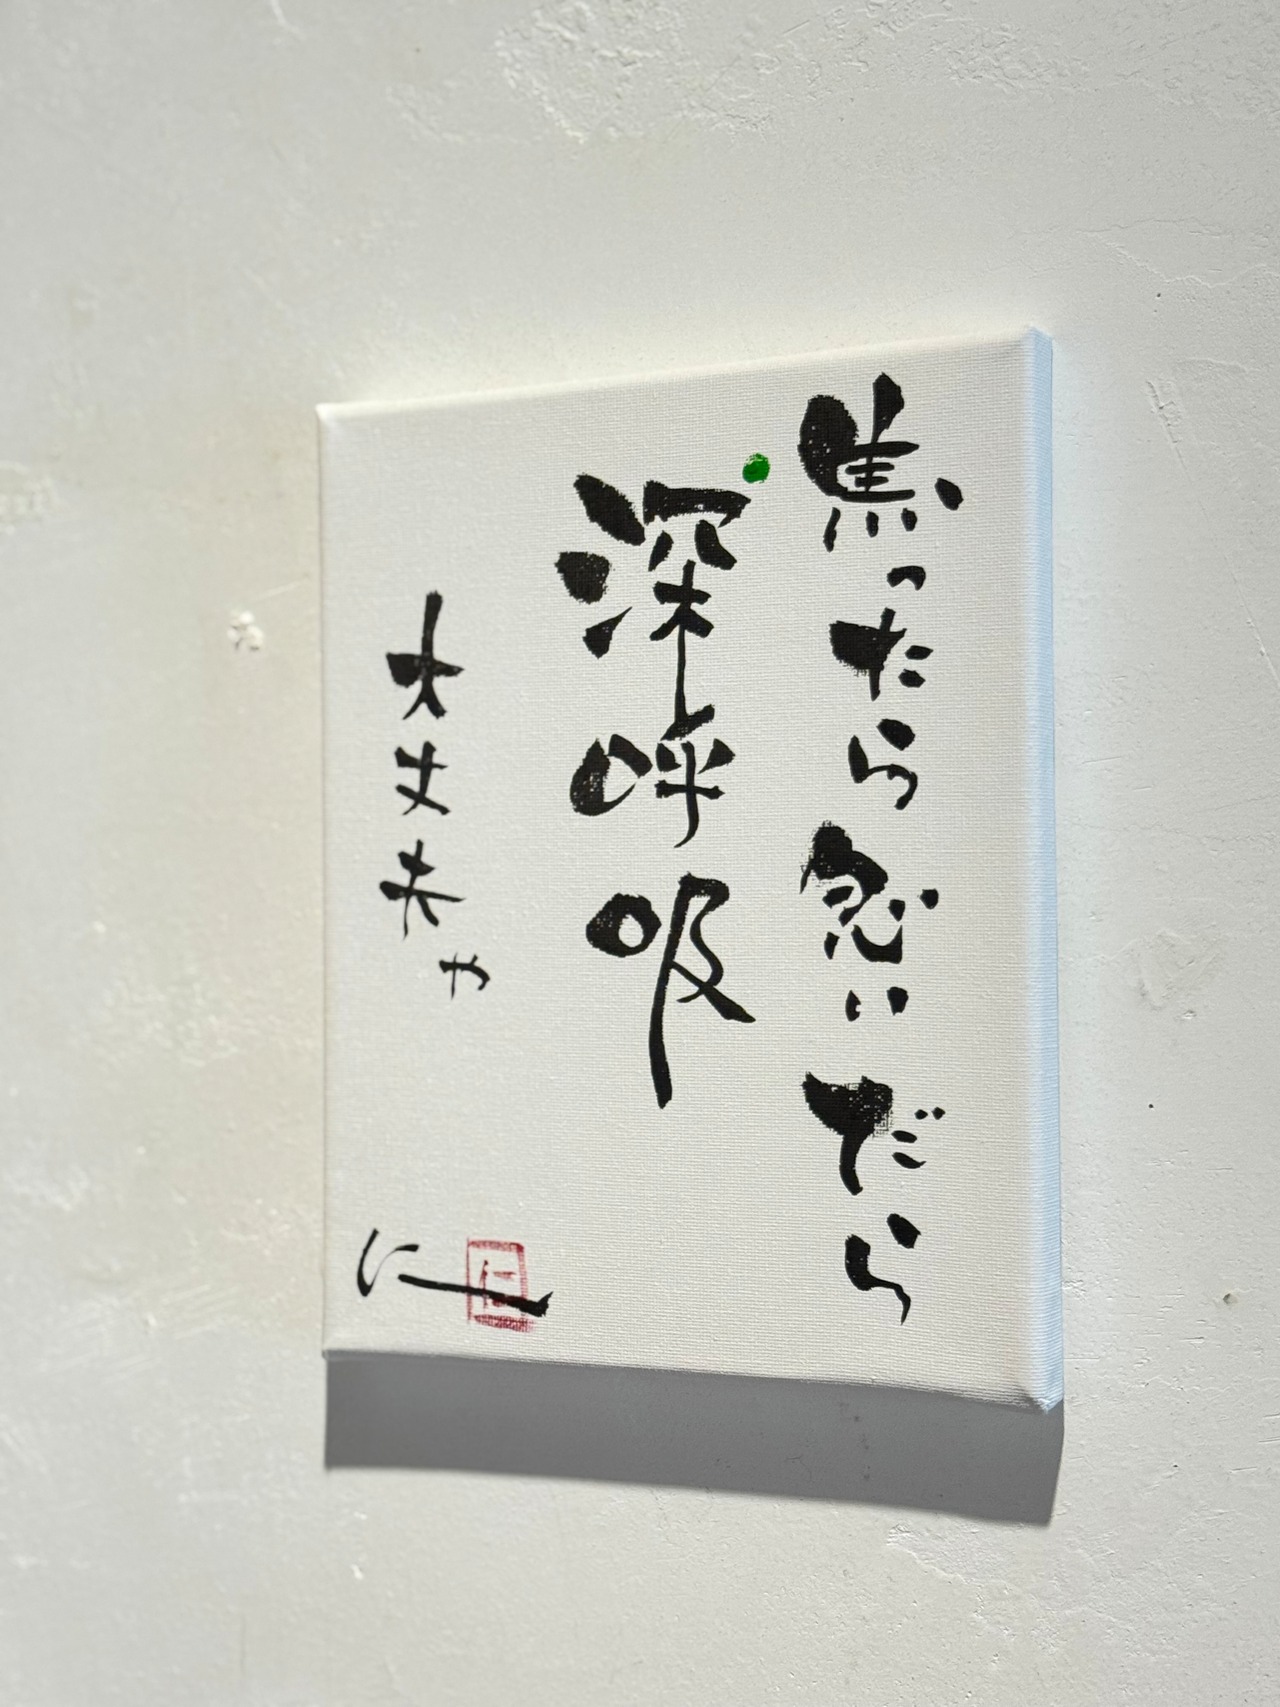 焦ったら急いだら
深呼吸
大丈夫や
仁
仁